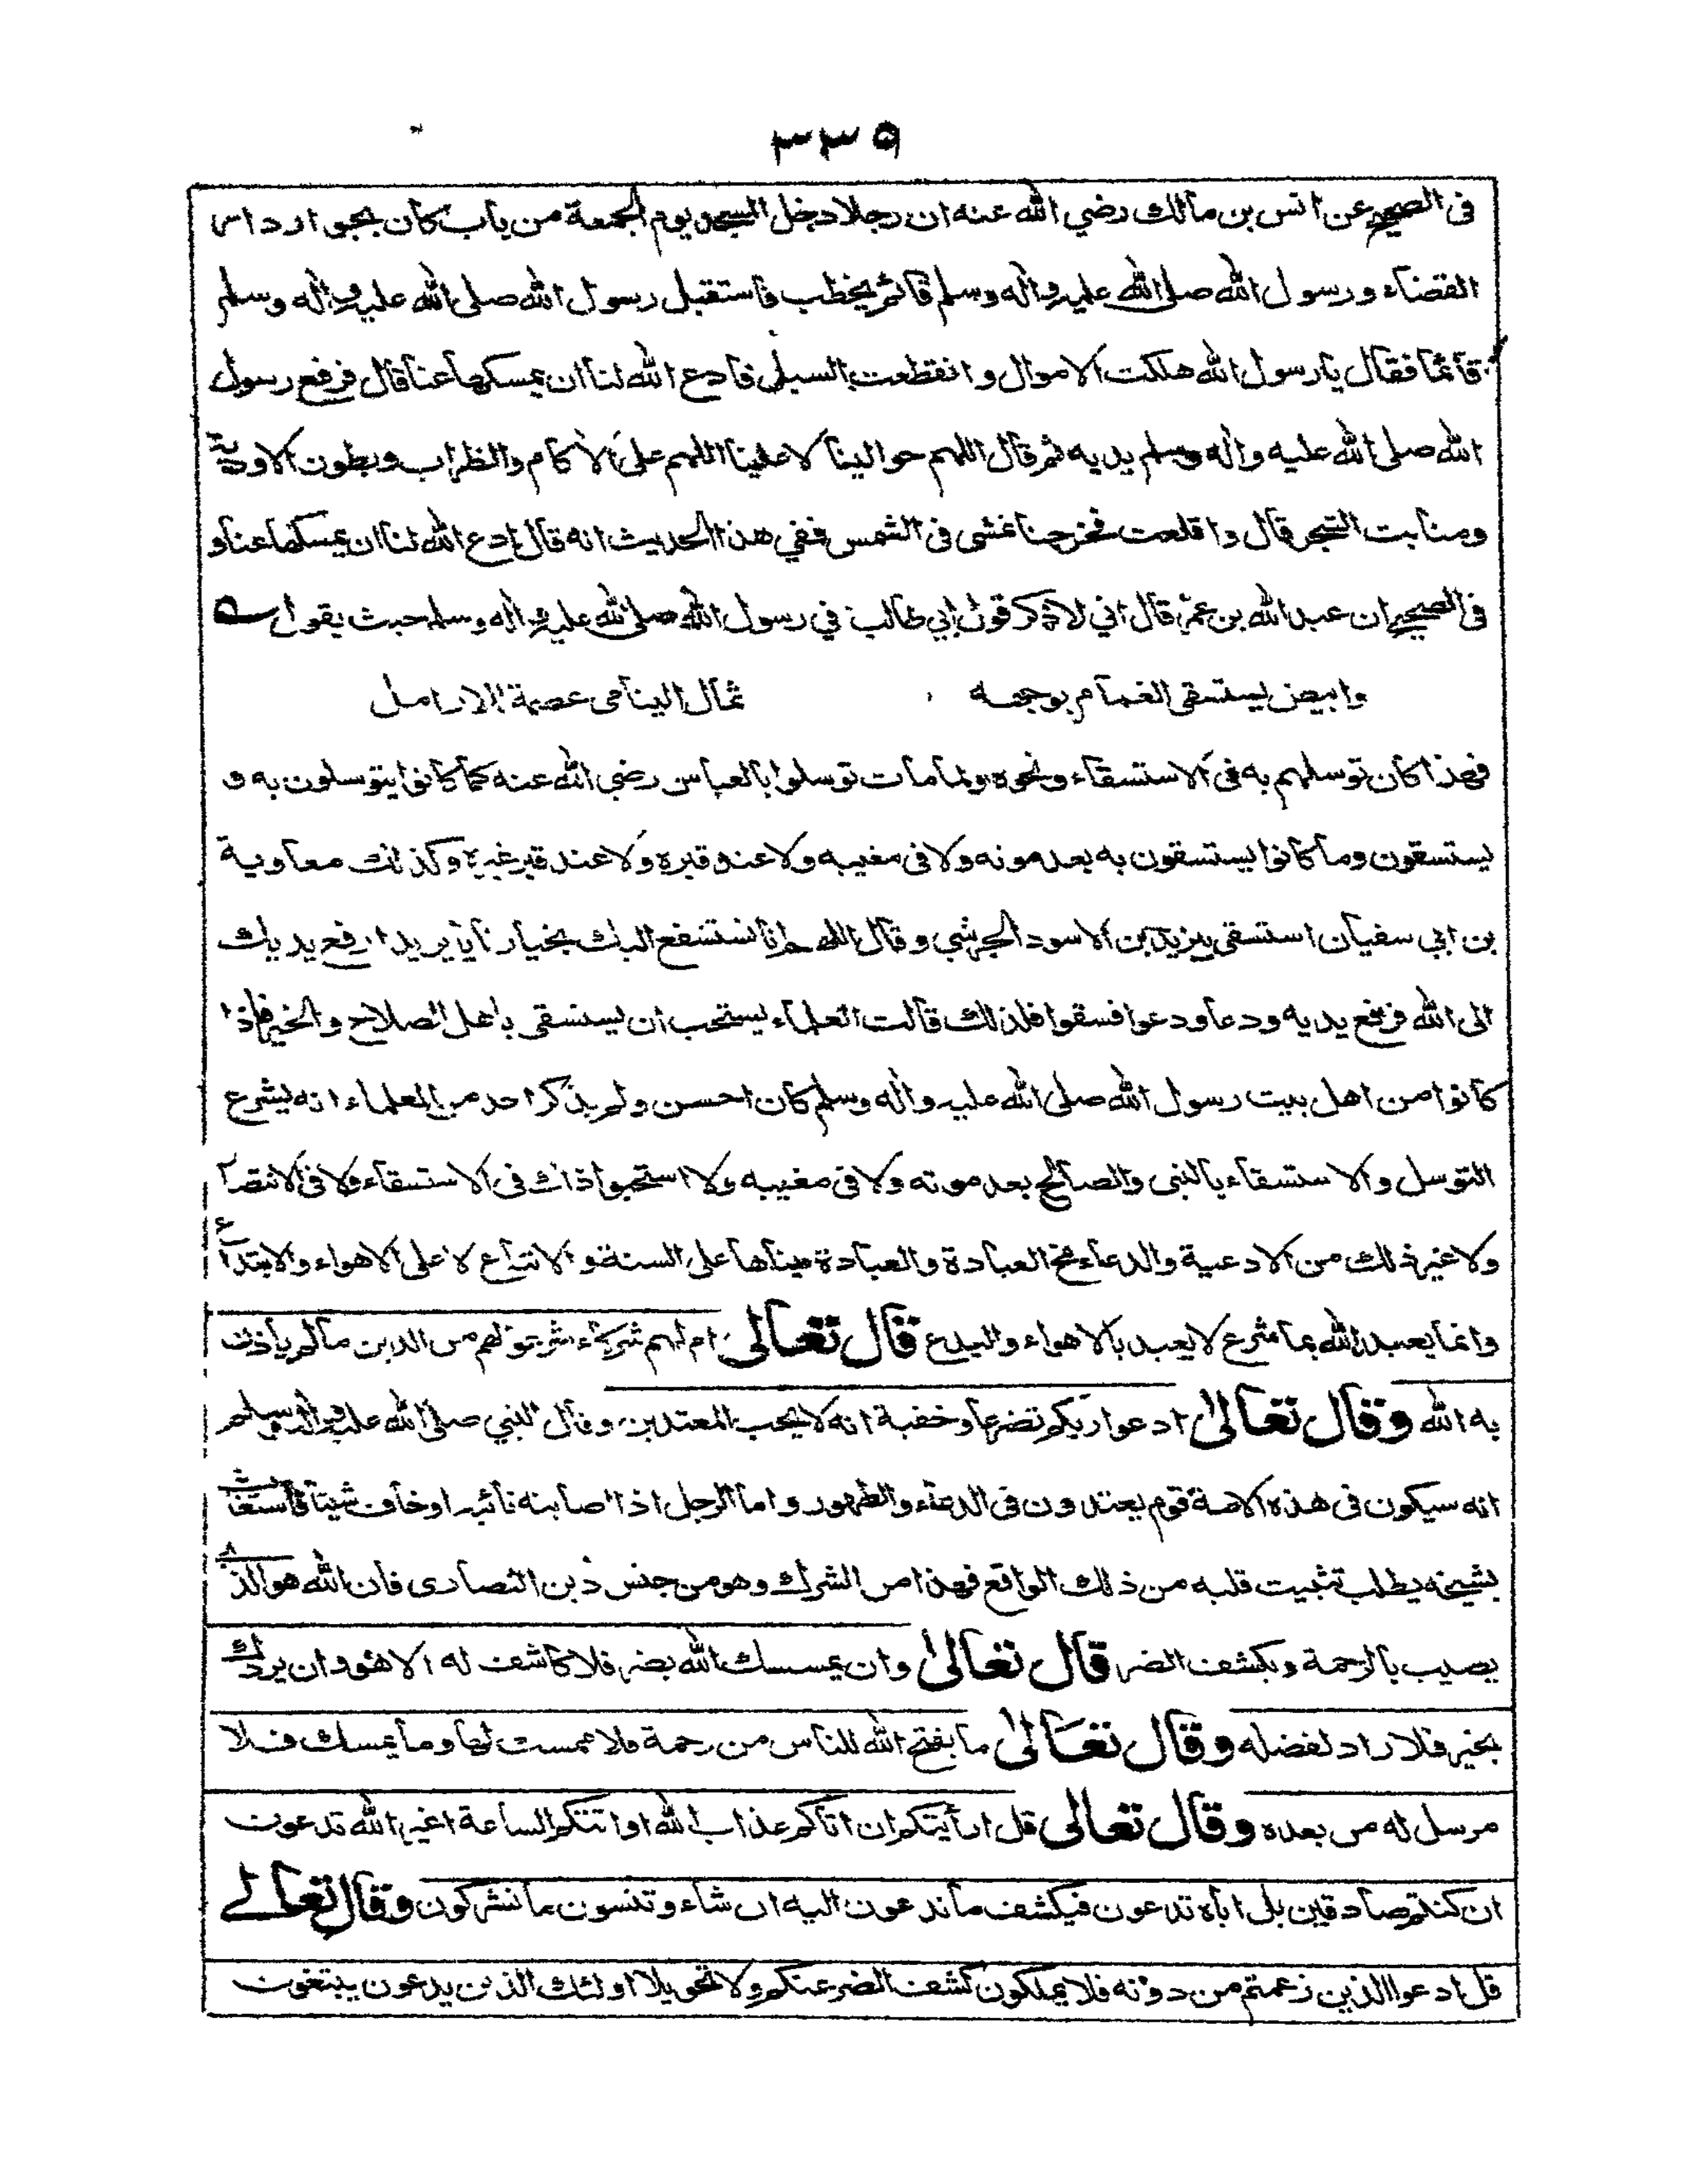 ٣٣٩
فى الصحيح عن انس بن مالك رضي الله عنه ان رجلا دخل المسجد يوم الجمعة من باب كان بجوار دار
القضاء ورسول الله صلى الله عليه واله وسلم قائم يخطب فاستقبل رسول الله صلى الله عليه واله وسلم
قائما فقال يا رسول الله هلكت الاموال وانقطعت السبل فادع الله لنا ان يمسكها عنا قال فرفع رسول
الله صلى الله عليه واله وسلم يديه ثم قال اللهم حوالينا لا علينا اللهم على الاكام والظراب وبطون الاودية
ومنابت الشجر قال واقلعت فخرجنا نمشى فى الشمس ففي هذا الحديث انه قال ادع الله لنا ان يمسكها عنا و
فى الصحيح ان عبد الله بن عمر قال اني لاذكر قول ابي طالب في رسول الله صلى الله عليه واله وسلم حيث يقول
وابيض يستسقى الغمام بوجهه ثمال اليتامى عصمة للارامل
فهذا كان توسلهم به فى الاستسقاء ونحوه ولما مات توسلوا بالعباس رضي الله عنه كما كانوا يتوسلون به و
يستسقون وما كانوا يستسقون به بعد موته ولا فى مغيبه ولا عند قبره ولا عند قبر غيره وكذلك معاوية
بن ابي سفيان استسقى بيزيد بن الاسود الجرشي وقال اللهم انا نستشفع اليك بخيارنا يا يزيد ارفع يديك
الى الله فرفع يديه ودعا ودعوا فسقوا فلذلك قالت العلماء يستحب ان يستسقى باهل الصلاح والخير فاذا
كانوا من اهل بيت رسول الله صلى الله عليه واله وسلم كان احسن ولم يذكر احد من العلماء انه يشرع
التوسل والاستسقاء بالنبى والصالح بعد موته ولا فى مغيبه ولا استحبوا ذلك فى الاستسقاء ولا فى الانتصا
ولا غير ذلك من الادعية والدعاء مخ العبادة والعبادة مبناها على السنة والاتباع لا على الاهواء والابتداع
وانما يعبد الله بما شرع لا يعبد بالاهواء والبدع قال تعالى ام لهم شركاء شرعوا لهم من الدين ما لم ياذن
به الله وقال تعالى ادعوا ربكم تضرعا وخفية انه لا يحب المعتدين وقال النبي صلى الله عليه واله وسلم
انه سيكون فى هذه الامة قوم يعتدون فى الدعاء والطهور واما الرجل اذا اصابته نائبة او خاف شيئا فاستغاث
بشيخه يطلب تثبيت قلبه من ذلك الواقع فهذا من الشرك وهو من جنس دين النصارى فان الله هو الذي
يصيب بالرحمة ويكشف الضر قال تعالى وان يمسسك الله بضر فلا كاشف له الا هو وان يردك
بخير فلا راد لفضله وقال تعالى ما يفتح الله للناس من رحمة فلا ممسك لها وما يمسك فلا
مرسل له من بعده وقال تعالى قل ارأيتكم ان اتاكم عذاب الله او اتتكم الساعة اغير الله تدعون
ان كنتم صادقين بل اياه تدعون فيكشف ما تدعون اليه ان شاء وتنسون ما تشركون وقال تعالے
قل ادعوا الذين زعمتم من دونه فلا يملكون كشف الضر عنكم ولا تحويلا اولئك الذين يدعون يبتغون